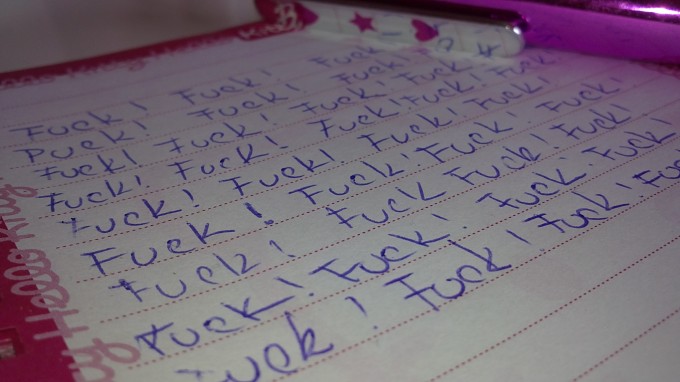 Fuck! Fuck! Fuck
Fuck! Fuck! Fuck!
Fuck! Fuck! Fuck Fuck
Fuck! Fuck! Fuck! Fuck! Fuck
Fuck! Fuck! Fuck! Fuck!
Fuck! Fuck! Fuck! Fuck!
Fuck! Fuck Fuck! Fuck!
Fuck! Fuck! Fuck! Fuck
Fuck! Fuck! Fuck! Fuck
Hello